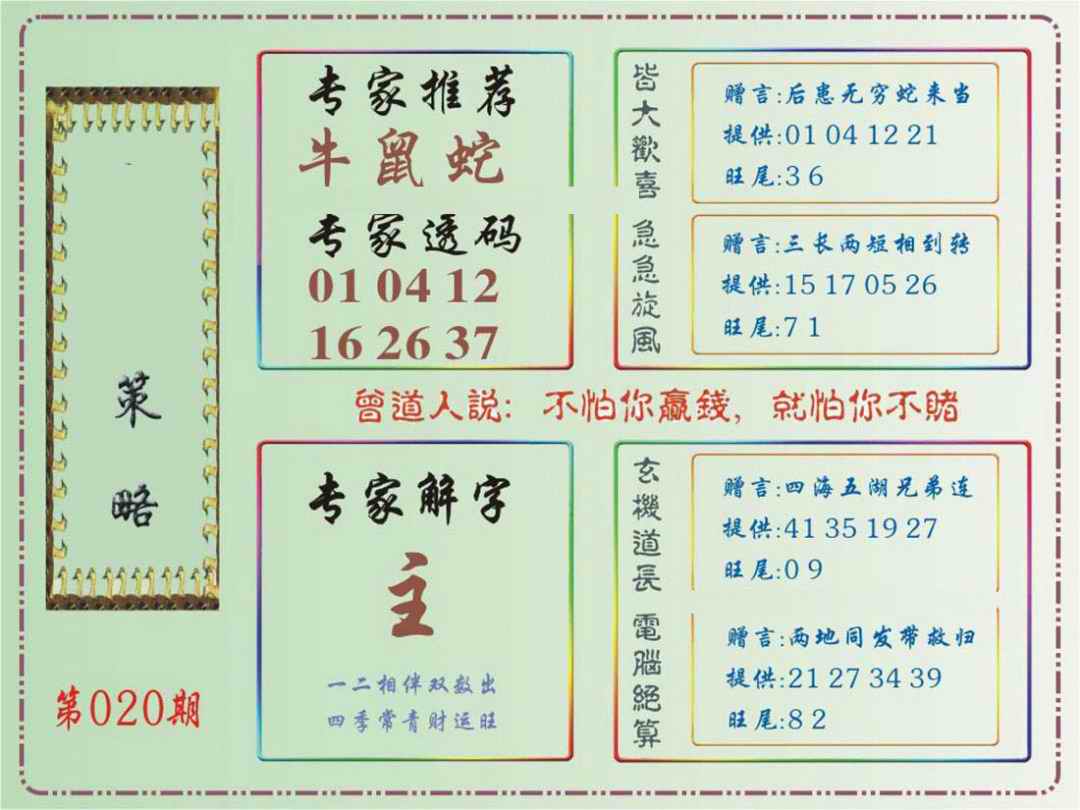 策略
第020期
专家推荐
牛鼠蛇
专家透码
01 04 12
16 26 37
皆大歡喜
赠言:后患无穷蛇来当
提供:01 04 12 21
旺尾:3 6
急急旋風
赠言:三长两短相到转
提供:15 17 05 26
旺尾:7 1
曾道人説: 不怕你贏錢, 就怕你不賭
专家解字
主
一二相伴双数出
四季常青财运旺
玄機道長
赠言:四海五湖兄弟连
提供:41 35 19 27
旺尾:0 9
電腦絕算
赠言:两地同发带救归
提供:21 27 34 39
旺尾:8 2